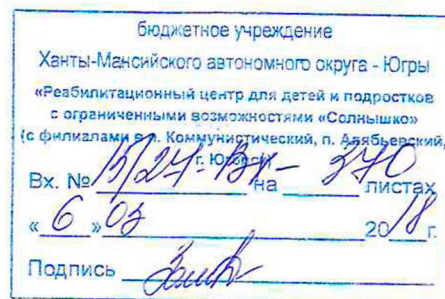 бюджетное учреждение
Ханты-Мансийского автономного округа - Югры
«Реабилитационный центр для детей и подростков
с ограниченными возможностями «Солнышко»
(с филиалами в п. Коммунистический, п. Алябьевский,
г. Югорск)
Вх. № 15/27-Вх-370 на листах
«6» 03 2018 г.
Подпись